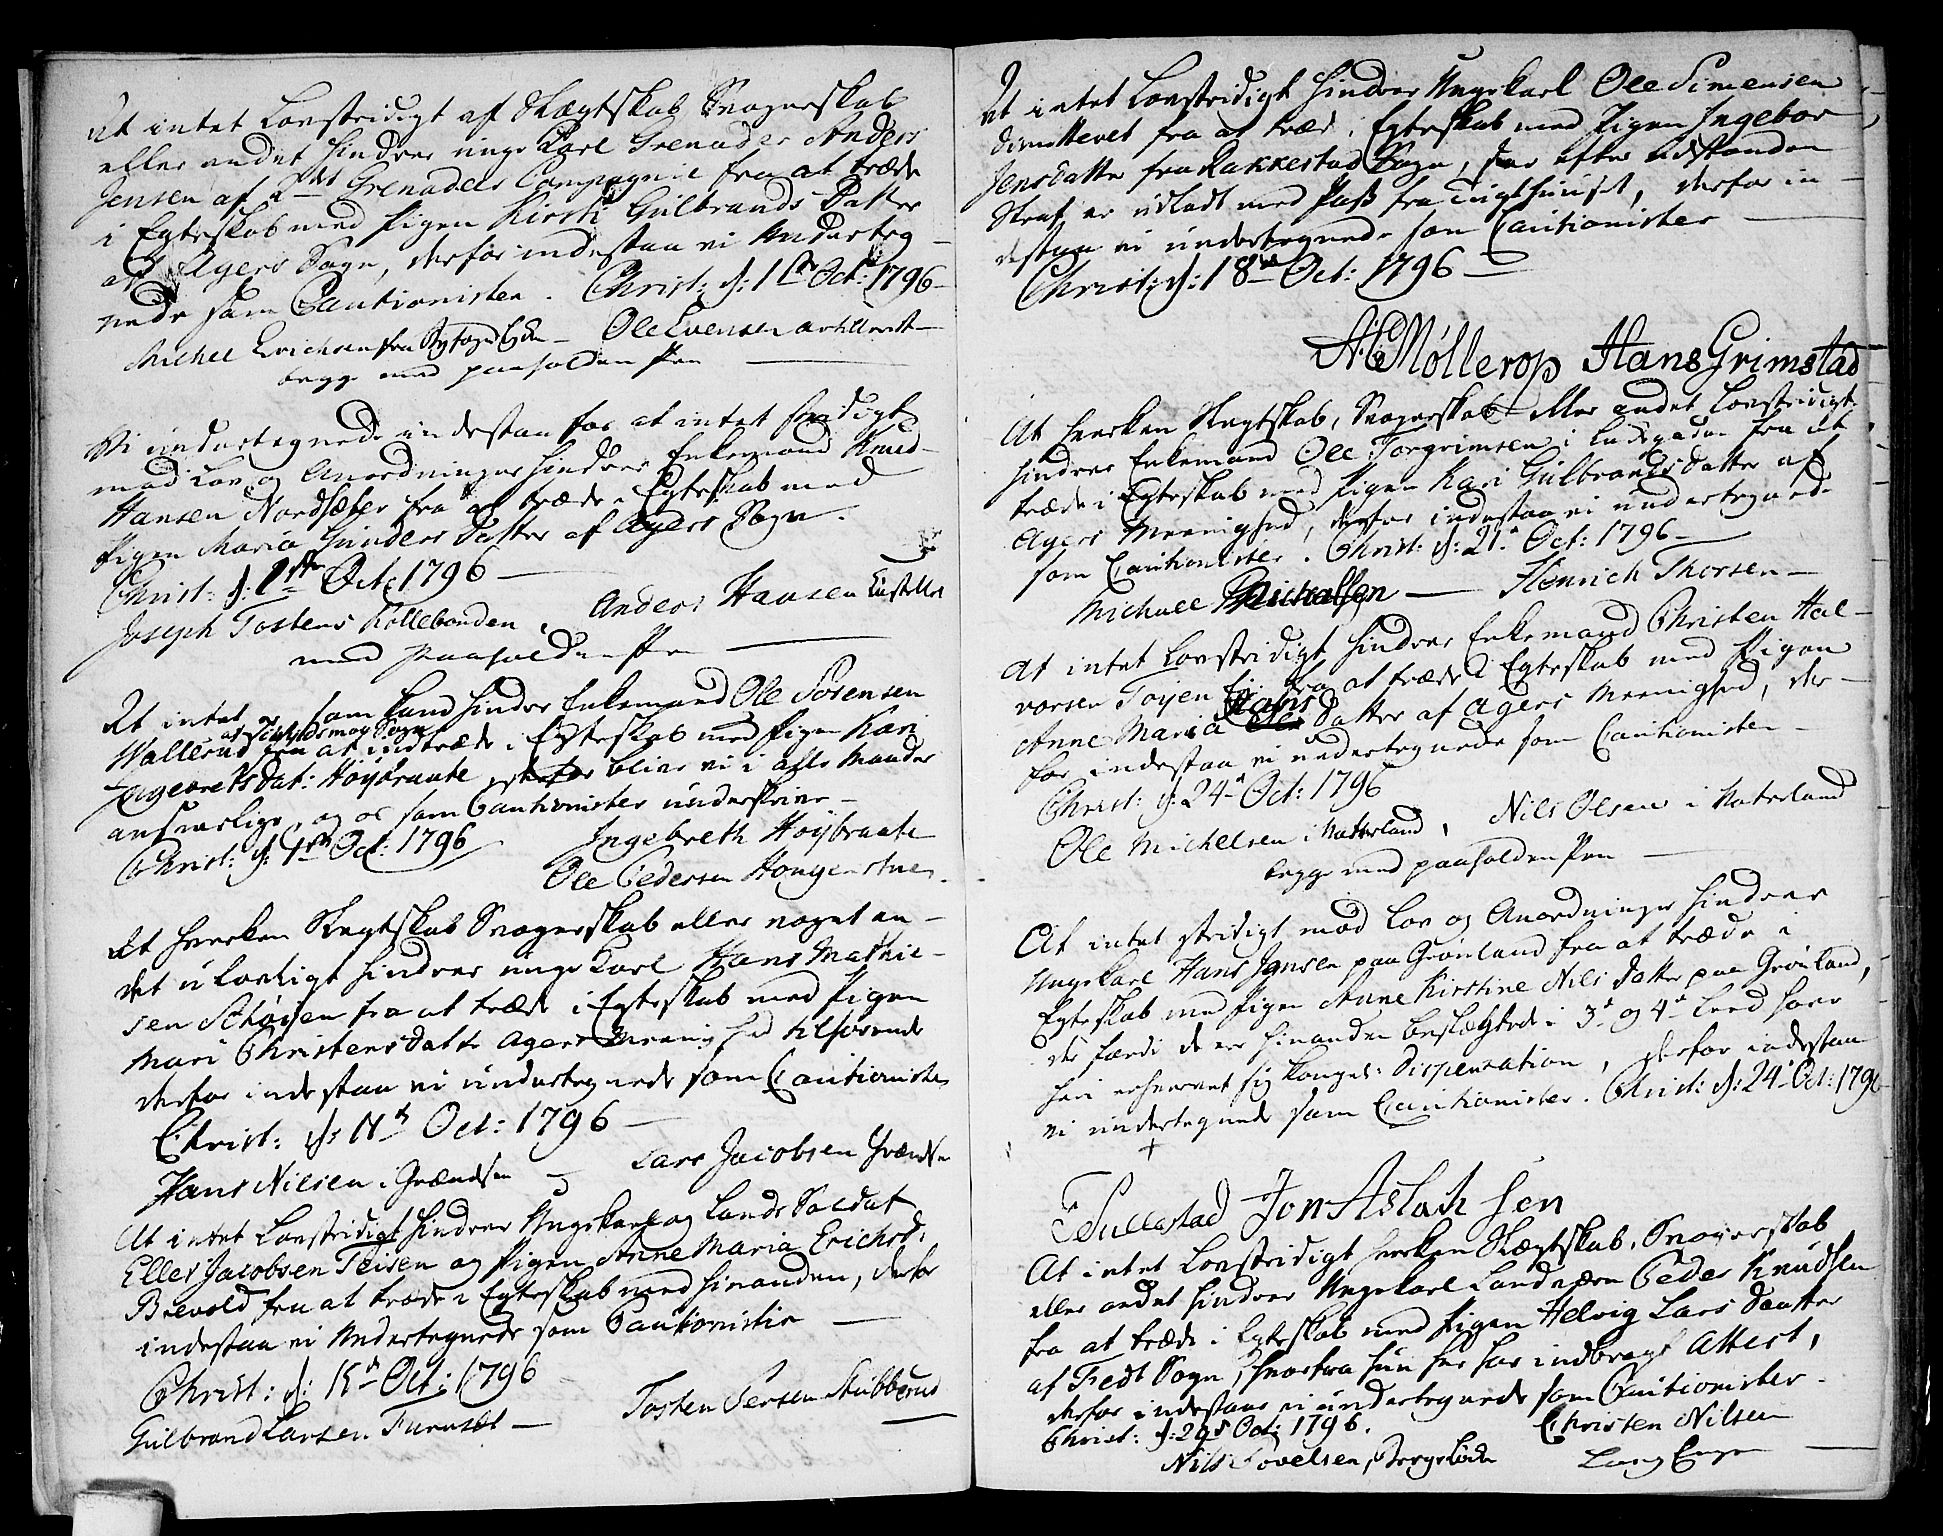 At intet Lovstridigt af Slægtskab Svogerskab
eller andet hindrer unge Karl Grenader Anders
Jensen af 2den Grenadeer Compagnie fra at træde
i Egteskab med Pigen Kirsti Gulbrands Datter
af Agers Sogn, derfor indestaa vi Underteg-
nede som Cautionister. Christ: d: 1ste Oct: 1796
Michel Erichsen fra - Ole Evensen Artillerist
begge med paaholden Pen
Vi undertegnede indestaa for at intet stridigt
mod Lov og Anordninger hindrer Enkemand Knud
Hansen Nordsæter fra at træde i Egteskab med
Pigen Maria Gunders Datter af Agers Sogn.
Christ: d: 1ste Oct: 1796
Joseph Tostens Kollebonden, Anders Hansen
med paaholden Pen
At intet som kand hindre Enkemand Ole Sørensen
Wallerud fra at indtræde i Egteskab med Pigen Kari
Ingebretsdat: Høybraate, derfor bliver vi i alle Maader
ansvarlige, og os som Cautionister underskriver
Christ: d: Oct: 1796 Ingebreth Høybraate
Ole Pedersen
At hverken Slegtskab Svogerskab eller noget an-
det ulovligt hindrer unge Karl Hans Mathie-
sen Schøyen fra at træde i Egteskab med Pigen
Mari Christensdatt: Agers Menighed tilhørende
derfor indestaa vi undertegnede som Cautionister
Christ: d: 11te Oct: 1796
Hans Nilsen i Grændsen - Lars Jacobsen Grændsen
At intet Lovstridigt hindrer Ungekarl og Lands Soldat
Eller Jacobsen Teisen og Pigen Anne Maria Erichsd:
Brevold fra at træde i Egteskab med hinanden, derfor
indestaa vi Undertegnede som Cautionister
Christ: d: 15de Oct: 1796
Gulbrand Larsen Furusæt - Tosten Persen Stubberud
At intet Lovstridigt hindrer Ungekarl Ole Simensen
fra at træde i Egteskab med Pigen Ingebor
Jensdatter fra Rakkestad Sogn, der efter udstanden
Straf er udladt med Pass fra Tugthuuset, derfor in-
destaa vi undertegnede som Cautionister
Christ: d: 18de Oct: 1796
Møllerop Hans Grimstad
At hverken Slegtskab, Svogerskab eller andet Lovstridigt
hindrer Enkemand Ole Torgrimsen i fra at
træde i Egteskab med Pigen Kari Gulbrands Datter af
Agers Meenighed, derfor indestaa vi undertegnede
som Cautionister. Christ: d: 21de Oct: 1796
Michael - Henrich Thorsen
At intet Lovstridigt hindrer Enkemand Christen Hal-
vorsen Tøyen fra at træde i Egteskab med Pigen
Anne Maria Hans Datter af Agers Meenighed, der-
for indestaa vi undertegnede som Cautionister
Christ: d: 24de Oct: 1796
Ole Michelsen i Vatterland, Nils Olsen i Vaterland
begge med paaholden Pen
At intet stridigt mod Lov og Anordninger hindrer
Ungekarl Hans Jensen paa Grønland fra at træde i
Egteskab med Pigen Anne Kirstine Nils Datter paa Grønland,
der fordi de er hinanden beslægtede i 3de og 4de Leed have
hver erhvervet sig Konges: Dispensation, derfor indestaa
vi undertegnede som Cautionister. Christ: d: 24de Oct: 1796
Tullestad Jon Aslachsen
At intet Lovstridigt hverken Slægtskab, Svogerskab
eller andet hindrer Ungekarl Landværn Peder Knudsen
fra at træde i Egteskab med Pigen Helvig Lars Daatter
af Fedt Sogn, hvorfra hun her har indbragt Attest,
derfor indestaar vi undertegnede som Cautionister
Christ: d: 29de Oct: 1796. Christen Nilsen
Nils Povelsen,